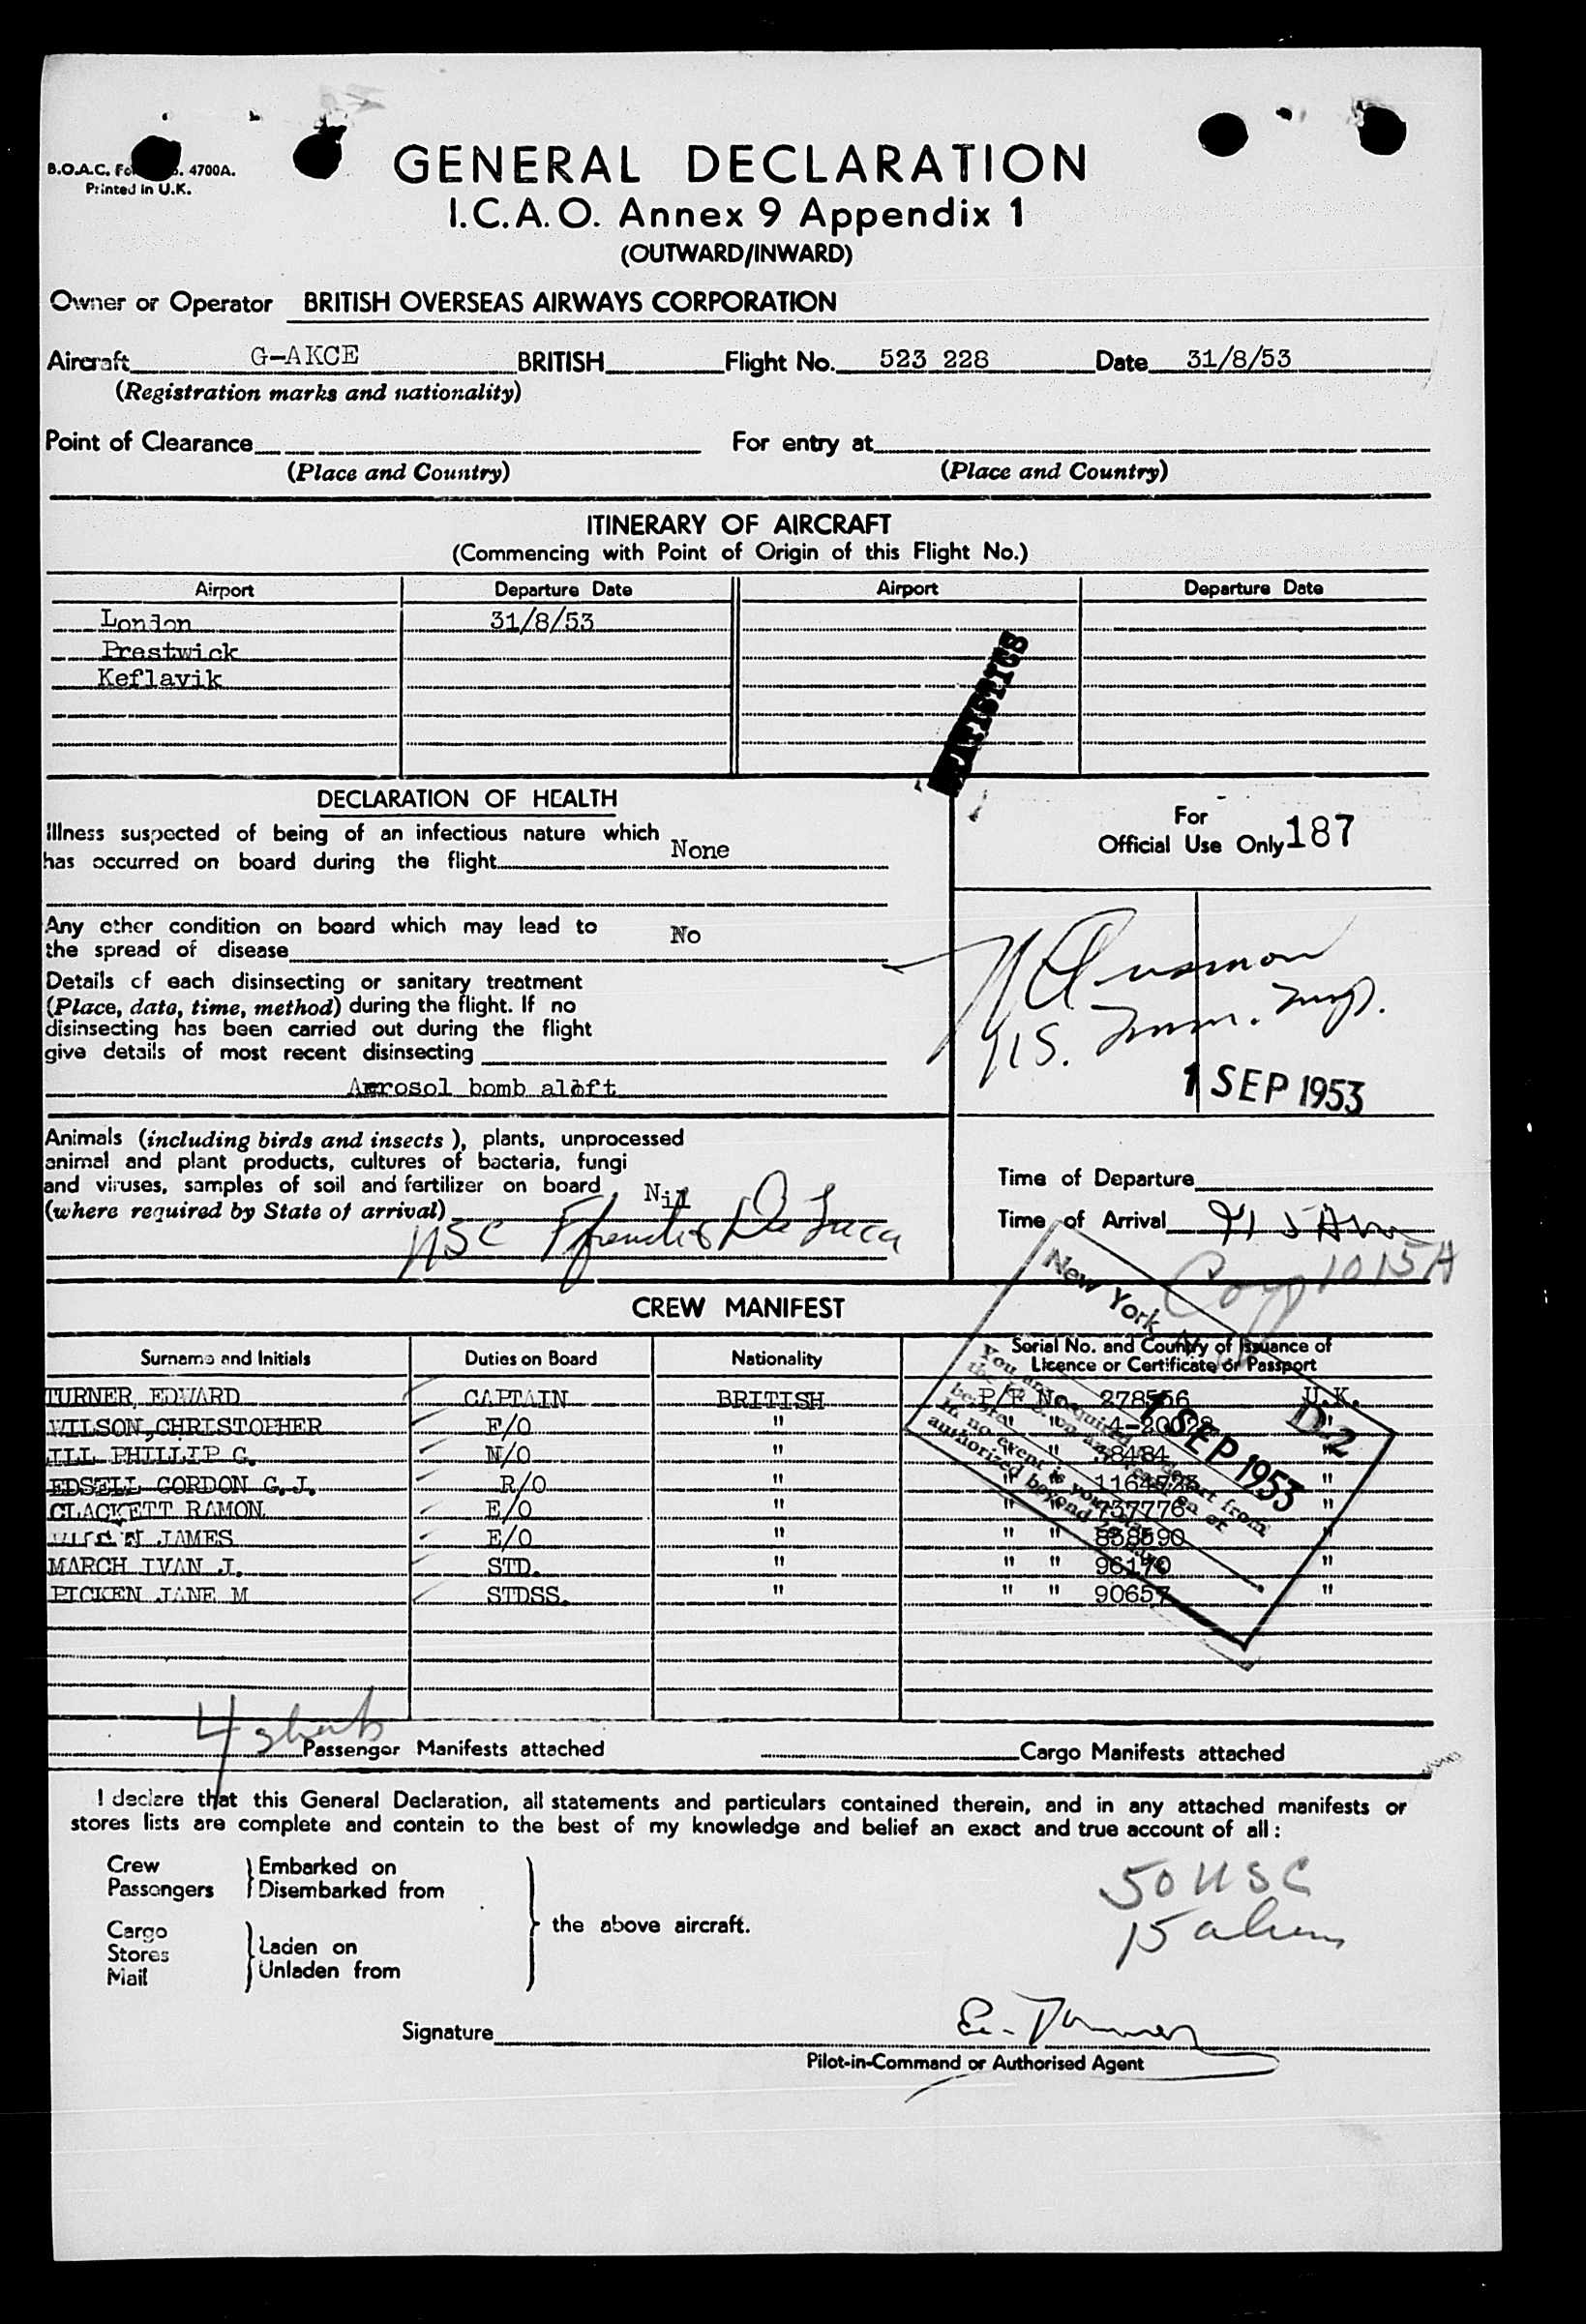 B.O.A.C. 4700A.
Printed in U.K.
GENERAL DECLARATION
I.C.A.O. Annex 9 Appendix 1
(OUTWARD/INWARD)
Owner or Operator BRITISH OVERSEAS AIRWAYS CORPORATION
Aircraft G-AKCE BRITISH Flight No. 523 228 Date 31/8/53
(Registration marks and nationality)
Point of Clearance For entry at
(Place and Country) (Place and Country)
ITINERARY OF AIRCRAFT
(Commencing with Point of Origin of this Flight No.)
Airport Departure Date Airport Departure Date
London 31/8/53
Prestwick
Keflavik
DECLARATION OF HEALTH
Illness suspected of being of an infectious nature which
has occurred on board during the flight None
Any other condition on board which may lead to
the spread of disease No
Details of each disinsecting or sanitary treatment
(Place, date, time, method) during the flight. If no
disinsecting has been carried out during the flight
give details of most recent disinsecting
Aerosol bomb aloft
Animals (including birds and insects), plants, unprocessed
animal and plant products, cultures of bacteria, fungi
and viruses, samples of soil and fertilizer on board Nil
(where required by State of arrival)
STATISTICS
For
Official Use Only 187
U.S. Imm. Insp.
1 SEP 1953
Time of Departure
Time of Arrival 915 AM
1015A
CREW MANIFEST
Surname and Initials Duties on Board Nationality Serial No. and Country of Issuance of
Licence or Certificate or Passport
TURNER, EDWARD CAPTAIN BRITISH P/P No 278556 U.K.
WILSON, CHRISTOPHER F/O " " "
PHILLIP G. N/O " " " "
EDSELL GORDON G.J. R/O " " " "
CLACKETT RAMON E/O " " " "
JAMES E/O " " " 838590 "
MARCH IVAN J. STD. " " " 96170 "
PICKEN JANE M STDSS. " " " 90657 "
New York
D.2
1 SEP 1953
4 sheets Passenger Manifests attached Cargo Manifests attached
I declare that this General Declaration, all statements and particulars contained therein, and in any attached manifests or
stores lists are complete and contain to the best of my knowledge and belief an exact and true account of all:
Crew
Passengers
Embarked on
Disembarked from
Cargo
Stores
Mail
Laden on
Unladen from
the above aircraft.
50 USC
15 aliens
Signature E. Turner
Pilot-in-Command or Authorised Agent